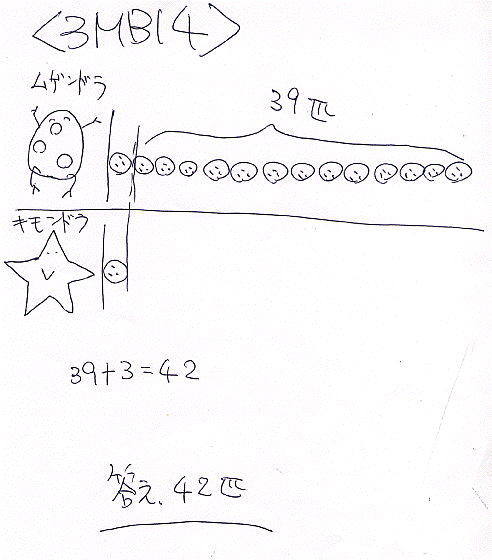 <3MB14>
ムゲンドラ
39匹
キモンドラ
39+3=42
答え、42匹